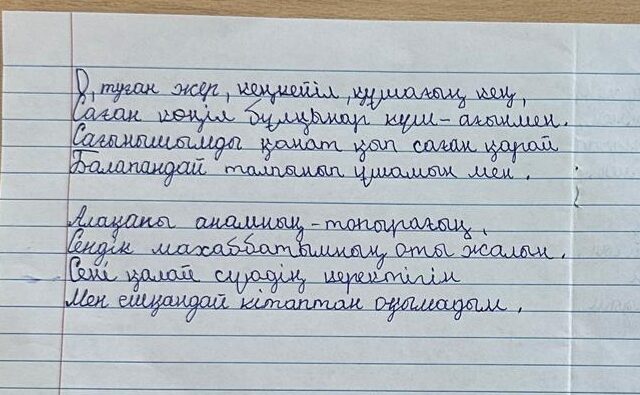 О, туған жер, кеңпейіл, құшағың кең,
Саған көңіл бұлқынар күш-ағынмен.
Сағынышымды қанат қып саған қарай
Балапандай талпынып ұшамын мен.
Алақаны анамның - топырағың,
Сендік махаббатымның оты жалын.
Сені қалай сүюдің керектігін
Мен ешқандай кітаптан оқымадым.